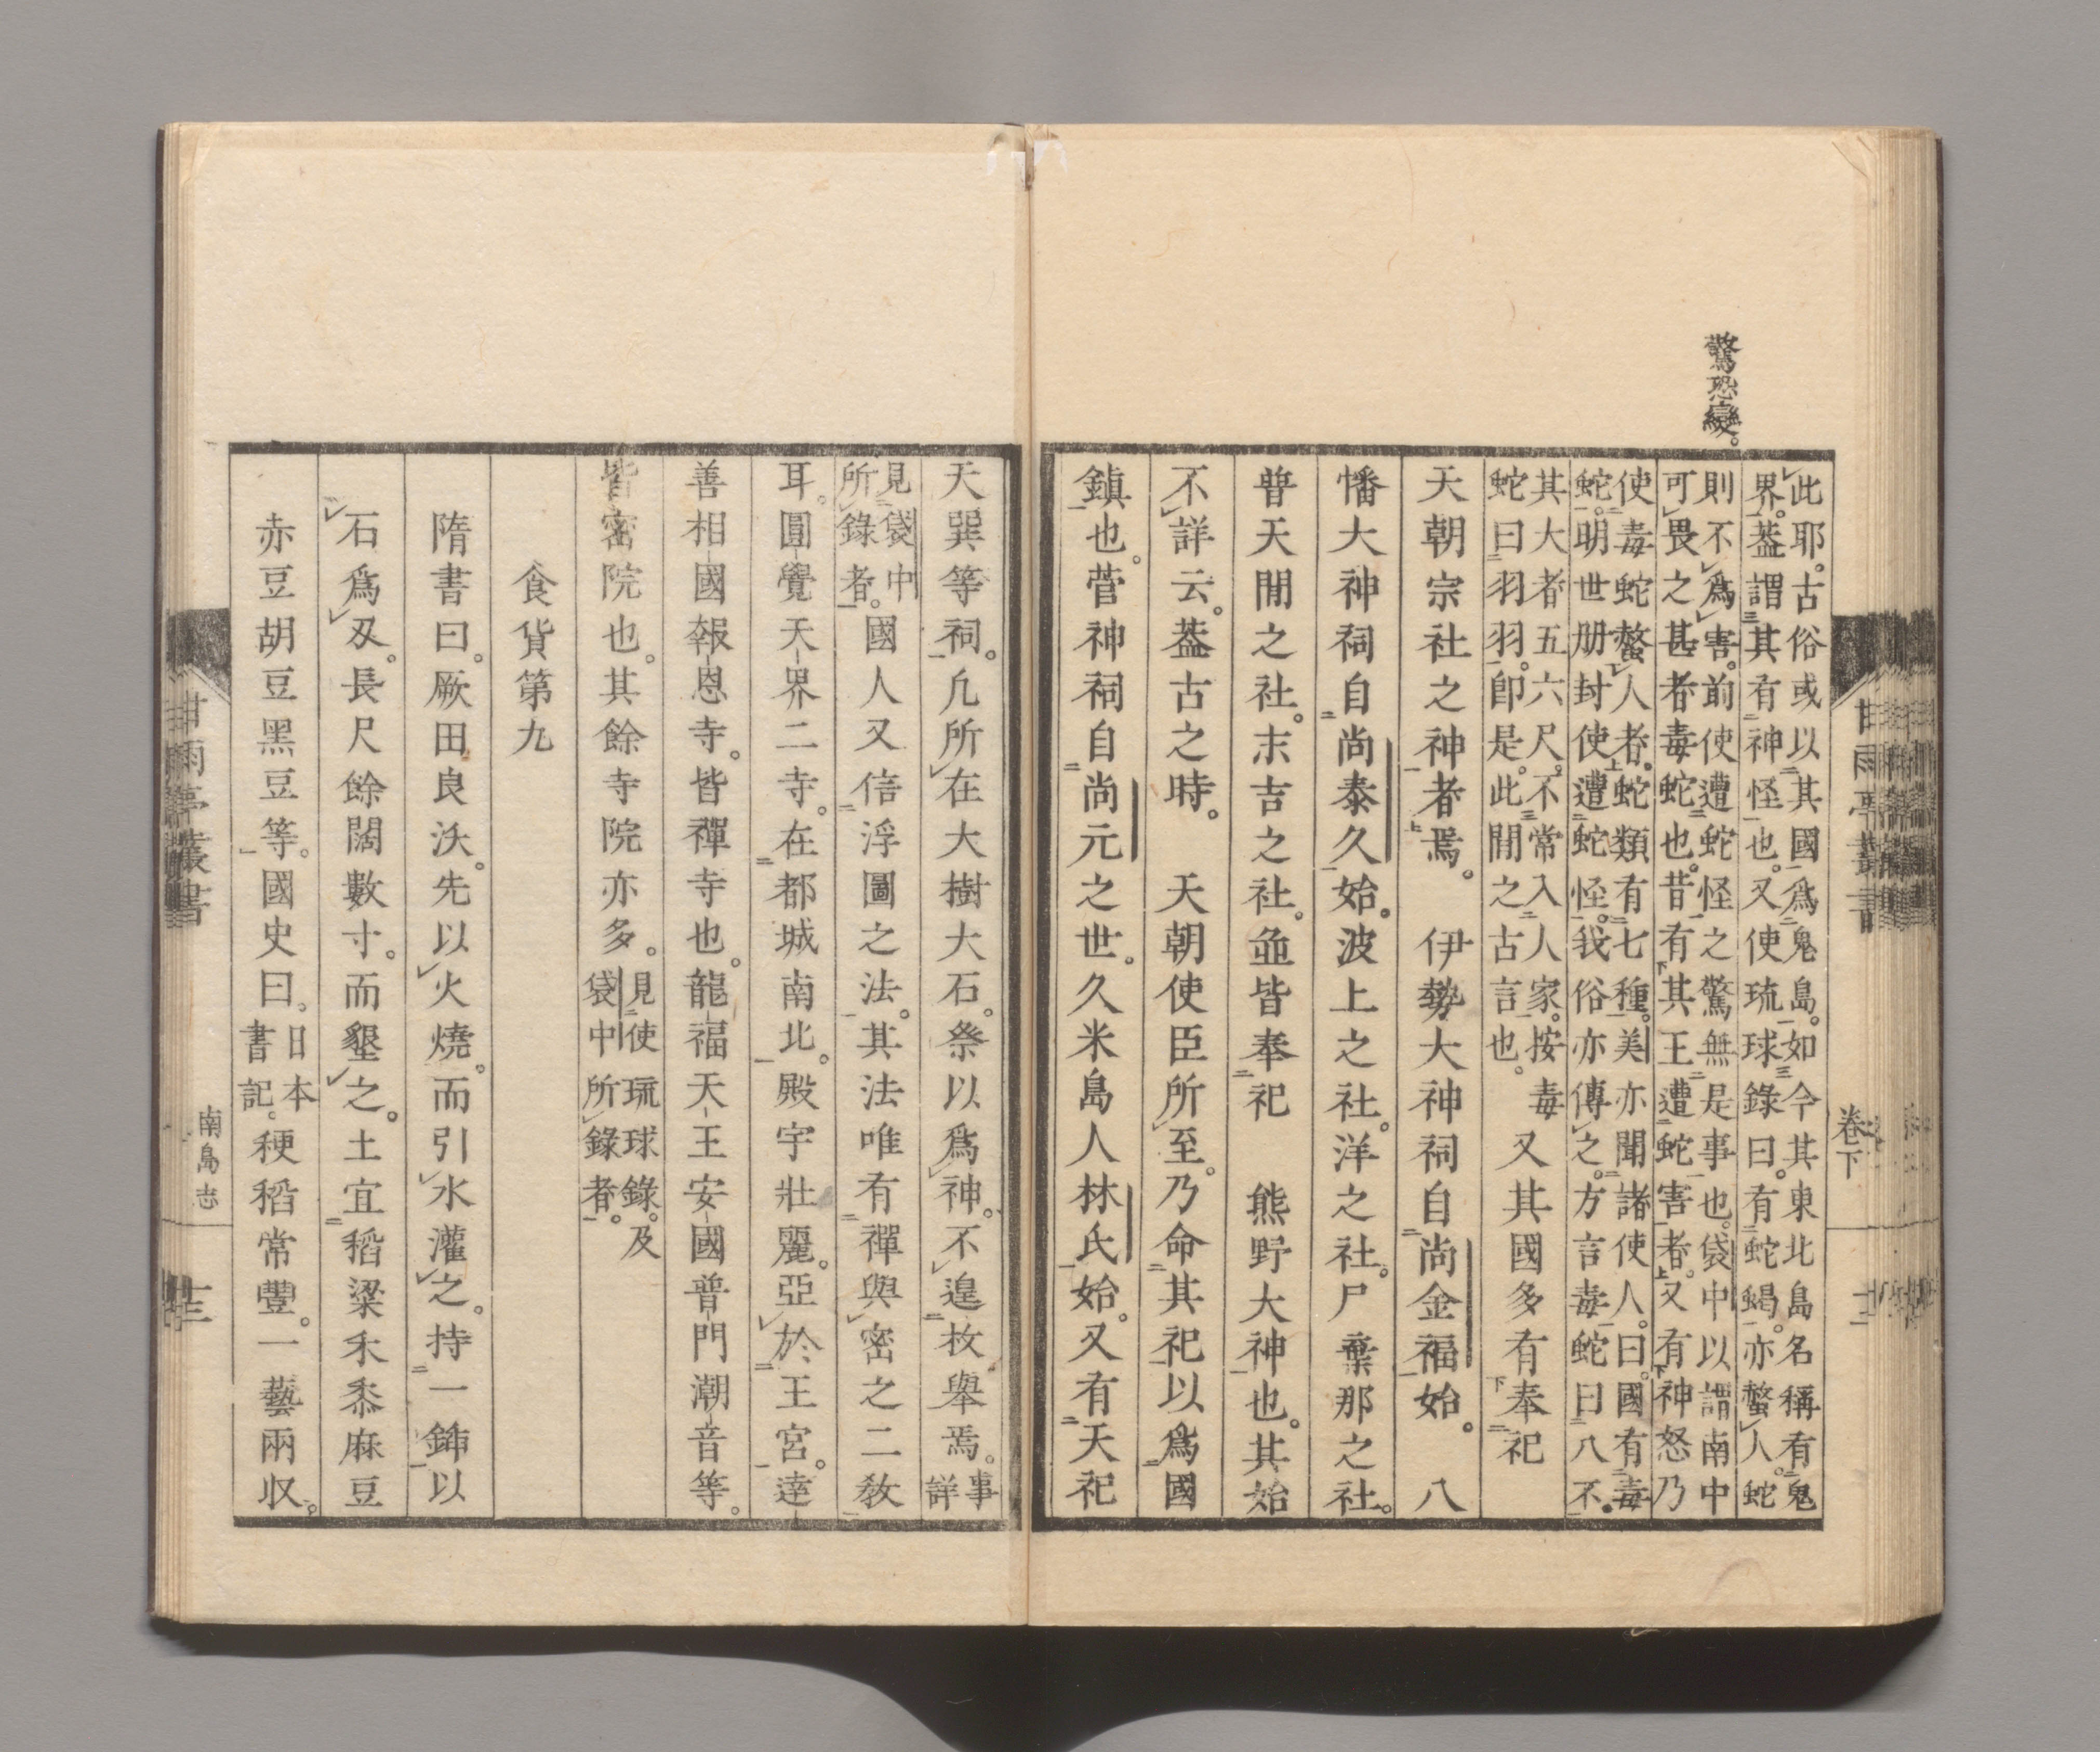 驚恐變。
此耶。古俗或以其國爲鬼島。如今其東北島名稱有鬼
界。葢謂其有神怪也。又使琉球錄曰。有蛇蝎。亦螫人。蛇
則不爲害。前使遭蛇怪之驚無是事也。袋中以謂南中
可畏之甚者毒蛇也。昔有其王遭蛇害者。又有神怒乃
使毒蛇螫人者。蛇類有七種。美亦聞諸使人。曰。國有毒
蛇。明世册封使遭蛇怪。我俗亦傳之。方言毒蛇曰八不。
其大者五六尺。不常入人家。按毒
蛇曰羽羽。卽是。此閒之古言也。
又其國多有奉祀
天朝宗社之神者焉。 伊勢大神祠自尚金福始。 八
幡大神祠自尚泰久始。波上之社。洋之社。尸棄那之社。
普天間之社。末吉之社。並皆奉祀 熊野大神也。其始
不詳云。葢古之時。 天朝使臣所至。乃命其祀以爲國
鎮也。菅神祠自尚元之世。久米島人林氏始。又有天祀
甘雨亭叢書
卷下
天巽等祠。凡所在大樹大石。祭以爲神。不遑枚舉焉。事詳
見袋中
所錄者。
國人又信浮圖之法。其法唯有禪與密之二教
耳。圓覺天界二寺。在都城南北。殿宇壯麗。亞於王宮。達
善相國報恩寺。皆禪寺也。龍福天王安國普門潮音等。
皆密院也。其餘寺院亦多。見使琉球錄。及
袋中所錄者。
食貨第九
隋書曰。厥田良沃。先以火燒。而引水灌之。持一鍤以
石爲刄。長尺餘闊數寸。而墾之。土宜稻粱禾黍麻豆
赤豆胡豆黑豆等。國史曰。日本
書記。
稉稻常豐。一藝兩収。
甘雨亭叢書
南島志
廿三